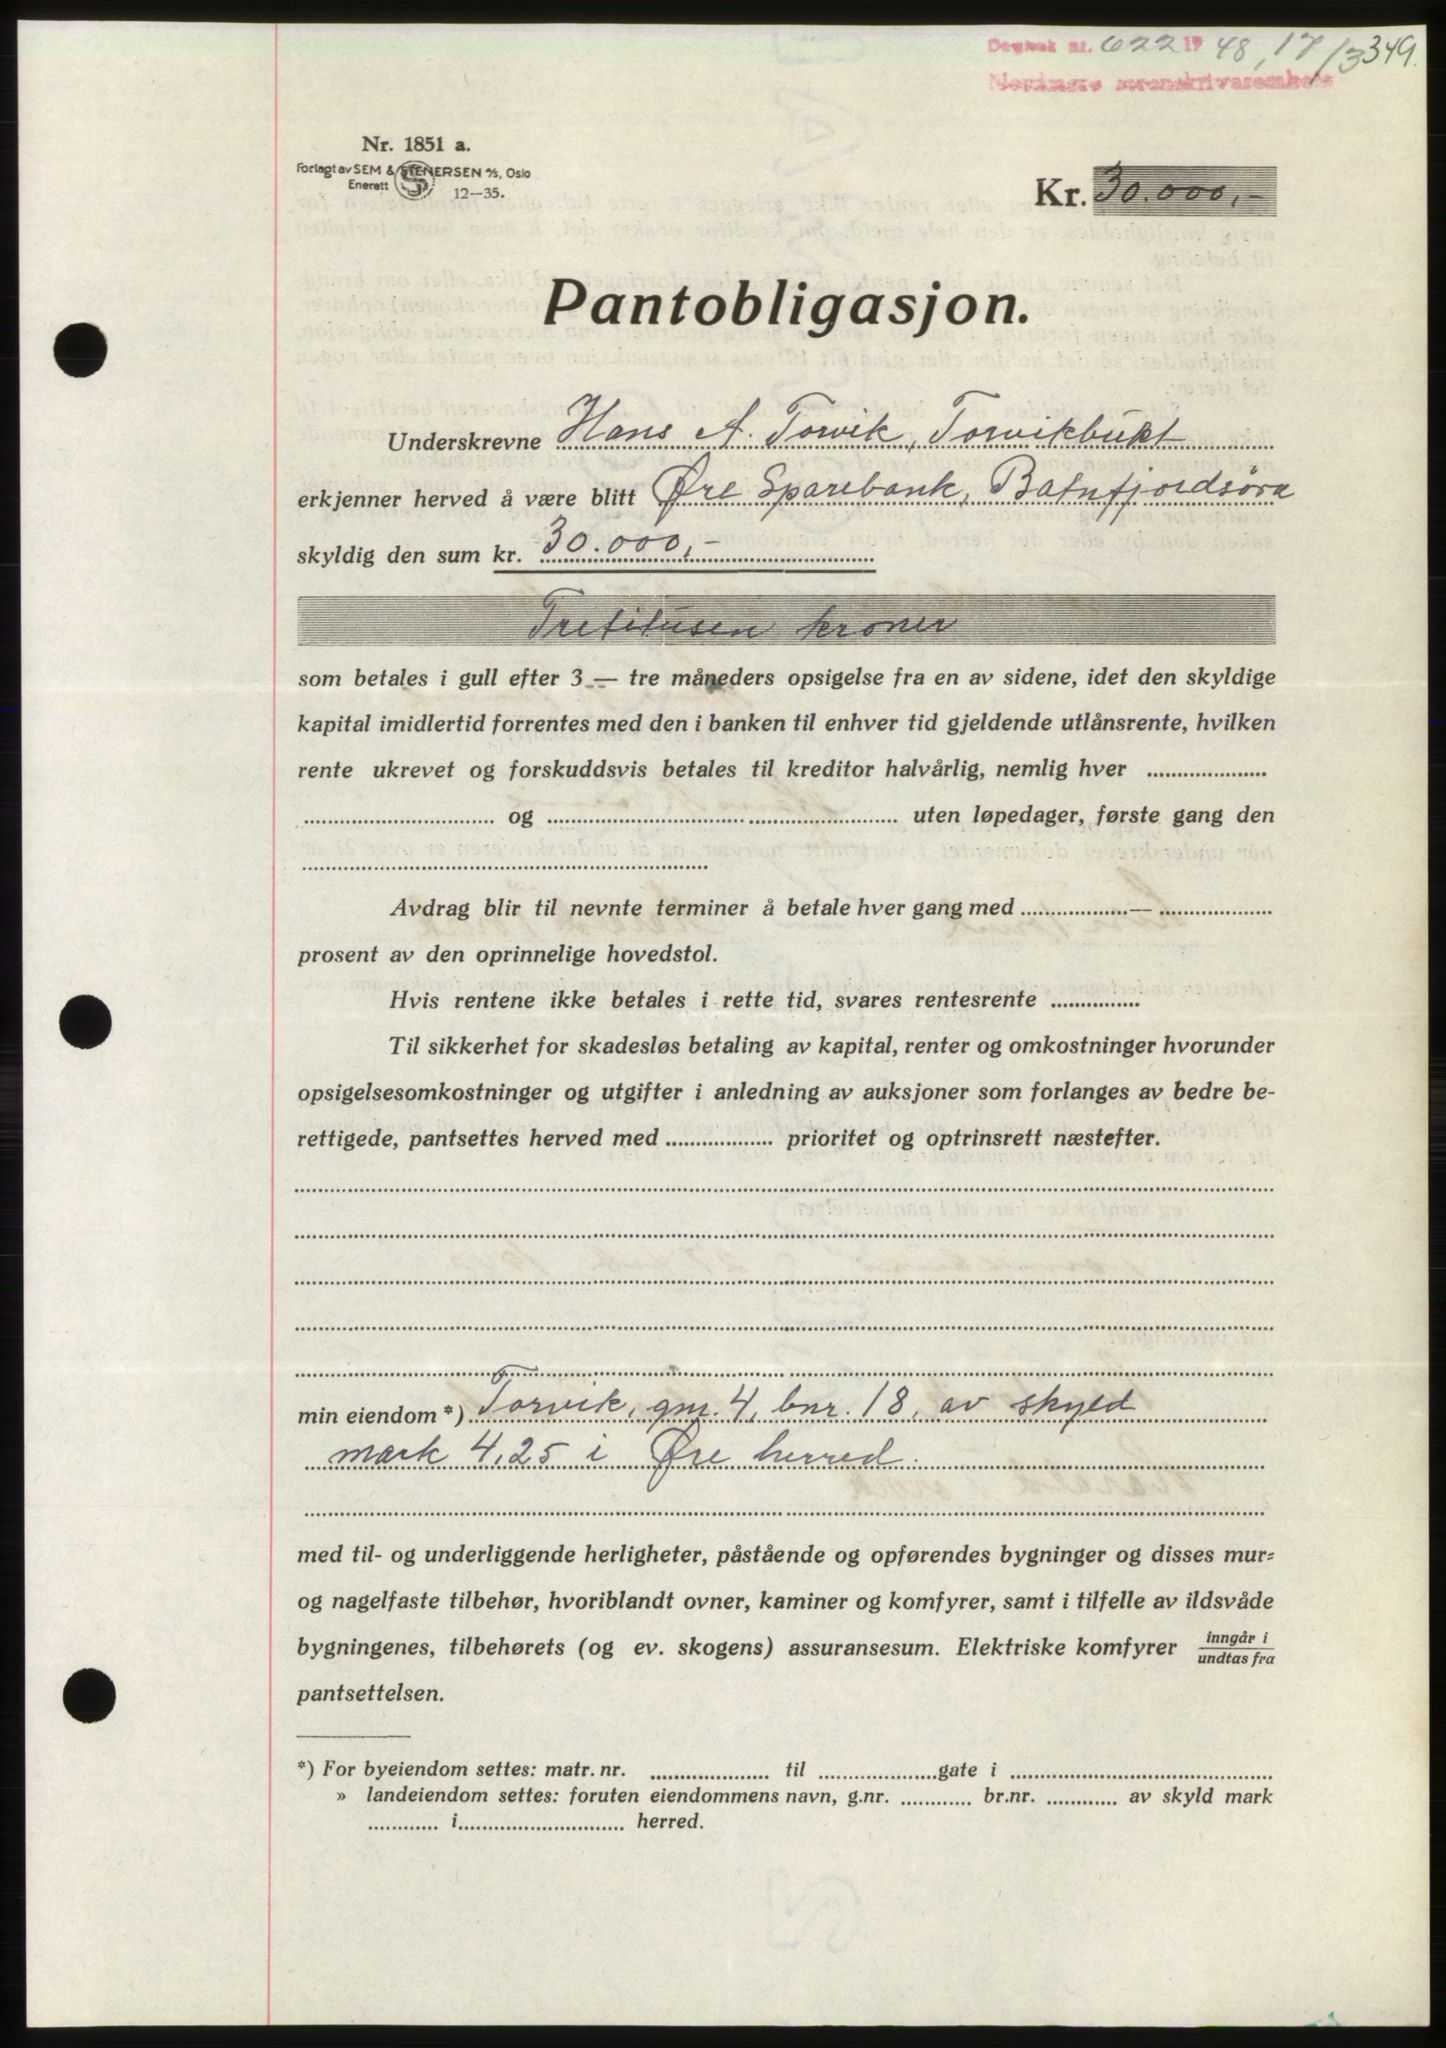 Dagbok nr. 622 19 48, 17/3 349.
Nordmøre sorenskriverembete
Nr. 1851 a.
Forlagt av SEM & STENERSEN A/S, Oslo
Enerett 12—35.
Kr. 30.000,-
Pantobligasjon.
Underskrevne Hans A. Torvik, Torvikbukt
erkjenner herved å være blitt Øre Sparebank, Batnfjordsøra
skyldig den sum kr. 30.000,-
Trettitusen kroner
som betales i gull efter 3 — tre måneders opsigelse fra en av sidene, idet den skyldige
kapital imidlertid forrentes med den i banken til enhver tid gjeldende utlånsrente, hvilken
rente ukrevet og forskuddsvis betales til kreditor halvårlig, nemlig hver ....................
................................ og ........................................................... uten løpedager, første gang den
....................................................................
Avdrag blir til nevnte terminer å betale hver gang med ..................—...................
prosent av den oprinnelige hovedstol.
Hvis rentene ikke betales i rette tid, svares rentesrente ...............
Til sikkerhet for skadesløs betaling av kapital, renter og omkostninger hvorunder
opsigelsesomkostninger og utgifter i anledning av auksjoner som forlanges av bedre be-
rettigede, pantsettes herved med .................. prioritet og optrinsrett næstefter.
min eiendom *) Torvik, gnr. 4, bnr. 18, av skyld
mark 4,25 i Øre herred.
med til- og underliggende herligheter, påstående og opførendes bygninger og disses mur-
og nagelfaste tilbehør, hvoriblandt ovner, kaminer og komfyrer, samt i tilfelle av ildsvåde
bygningenes, tilbehørets (og ev. skogens) assuransesum. Elektriske komfyrer inngår i
undtas fra
pantsettelsen.
*) For byeiendom settes: matr. nr. .................... til ....................gate i ............................................
» landeiendom settes: foruten eiendommens navn, g.nr. ............ br.nr. ............ av skyld mark
............ i............................ herred.